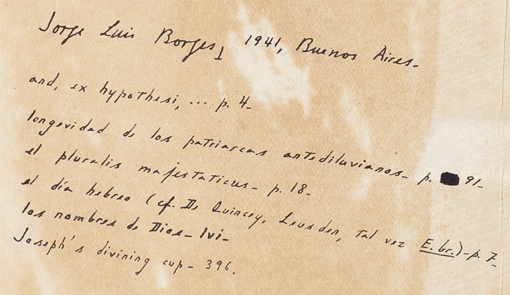 Jorge Luis Borges, 1941, Buenos Aires.
and, ex hypothesi, ... p. 4.
longevidad de los patriarcas antediluvianos. p. 91.
el pluralis majestaticus. p. 18.
el día hebreo (cf. De Quincey, Leusden, tal vez E.br.). p. 7.
los nombres de Dios. lvi.
Joseph's divining cup. 396.